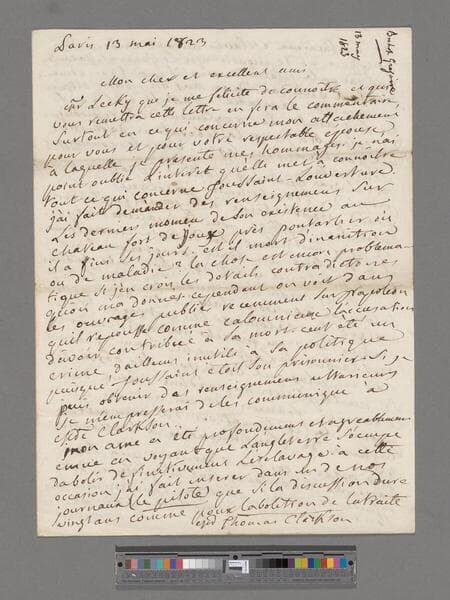 Paris 13 mai 1823
13 may
1823
Mon cher et excellent ami
Mr Lecky que je me félicite de connoitre et qui
vous remettra cette lettre en sera le commentaire,
surtout en ce qui concerne mon attachement
pour vous et pour votre respectable épouse,
à laquelle je présente mes hommages. je n'ai
point oublié l'intéret quelle met à connoitre
tout ce qui concerne Toussaint-Louverture.
j'ai fait demander des renseignemens sur
les derniers momens de son existence au
chateau fort de Joux près pontarlier où
il a fini ses jours. est il mort d'inanition
ou de maladie? la chose est encor problema-
tique si j'en crois les details contradictoires
qu'on m'a donnés. cependant on voit dans
les ouvrages publiés recemment sur Napoleon
qu'il repousse comme calomnieuse l'accusation
d'avoir contribué à sa mort. c'eut été un
crime, d'ailleurs inutile à sa politique
puisque Toussaint étoit son prisonnier. si je
puis obtenir des renseignemens ulterieurs
je m'empresserai de les communiquer à
Clarkson.
mon ame a été profondement et agreablement
emue en voyant que l'angleterre s'occupe
d'abolir definitivement l'esclavage. à cette
occasion j'ai fait inserer dans un de nos
journaux (le pilote) que si la discussion dure
vingt ans comme pour l'abolition de la traite
Thomas Clarkson